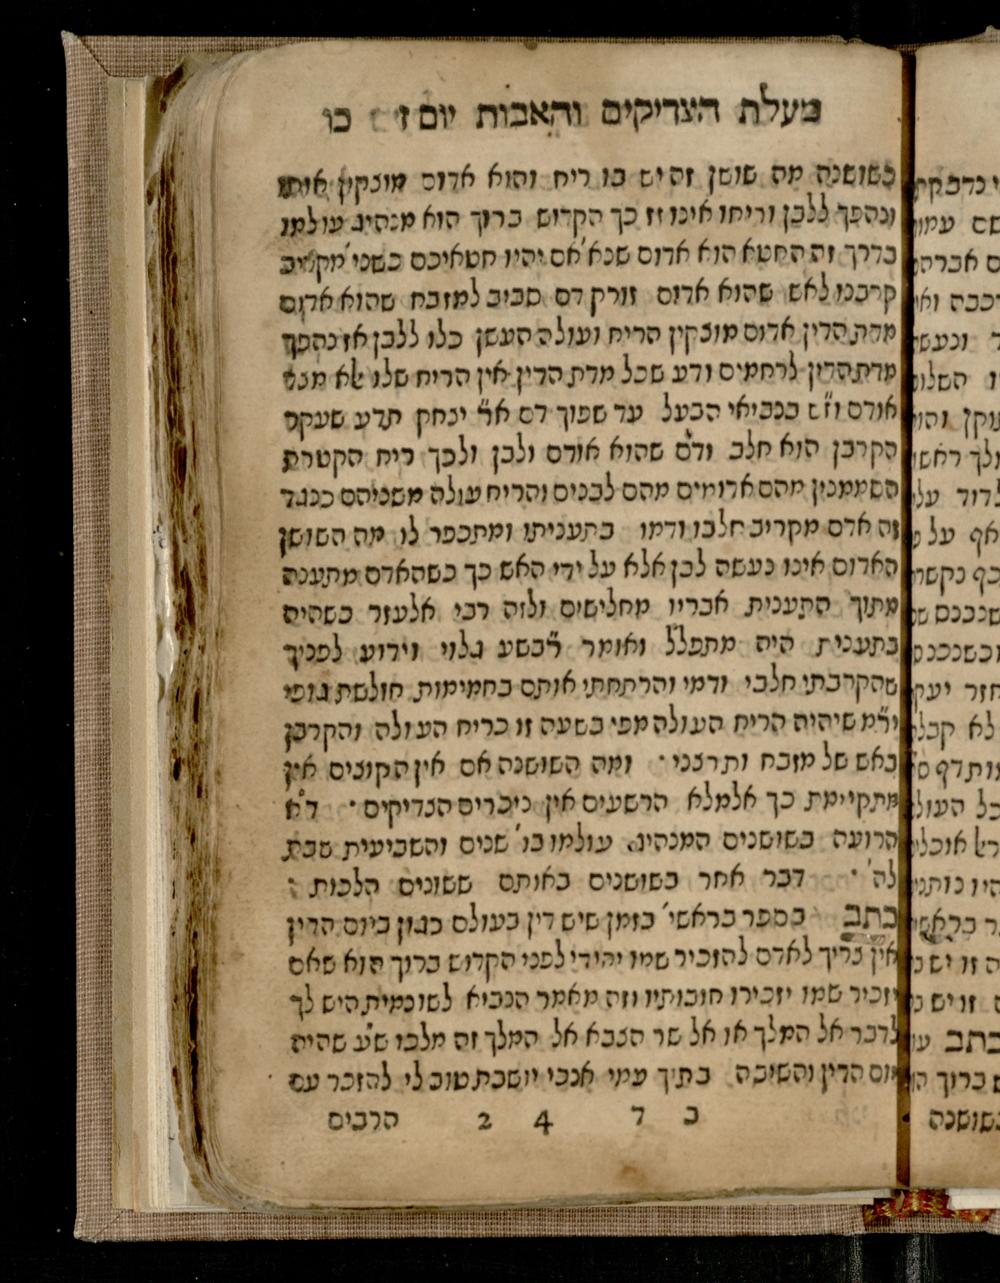 מעלת הצדיקים והאבות יום ז כו
כשושנה מה שושן זה יש בו ריח והוא אדום מונקין אותו
ונהפך ללבן וריחו אינו זז כך הקדוש ברוך הוא מנהיג עולמו
בדרך זה החטא הוא אדום שנא' אם יהיו חטאיכם כשני מקריב
קרבנו לאש שהוא אדום זורק דם סביב למזבח שהוא אדום
מדת הדין אדום מונקין הריח ועולה העשן כלו ללבן אז נהפך
מדת הדין לרחמים ודע שכל מדת הדין אין הריח שלו אלא
אודם וז"ש בנביאי הבעל עד שפוך דם א"ר ינחק תדע שעקר
הקרבן הוא חלב ודם שהוא אודם ולבן ולכך ריח הקטרת
הסממנין מהם אדומים מהם לבנים והריח עולה משניהם כנגד
זה אדם מקריב חלבו ודמו בתעניתו ומתכפר לו מה השושן
האדום אינו נעשה לבן אלא על ידי האש כך כשהאדם מתענה
מתוך התענית אבריו מחלישים ולזה רבי אלעזר כשהיה
בתענית היה מתפלל ואומר רבש"ע גלוי וידוע לפניך
שהקרבתי חלבי ודמי והרתחתי אותם בחמימות חולשת גופי
יר"מ שיהיה הריח העולה מפי בשעה זו כריח העולה והקרבן
באש של מזבח ותרצני · ומה השושנה אם אין הקוצים אין
מתקיימת כך אלמלא הרשעים אין ניכרים הצדיקים · ד"א
הרועה בשושנים המנהיג עולמו בו' שנים והשביעית שבת
לה' · דבר אחר בשושנים באותם ששונים הלכות :
כתב בספר בראשי' בזמן שיש דין בעולם כגון ביום הדין
אין צריך לאדם להזכיר שמו יחידי לפני הקדוש ברוך הוא שאם
יזכיר שמו יזכירו חובותיו וזה מאמר הנביא לשונמית היש לך
לדבר אל המלך או אל שר הצבא אל המלך זה מלכו ש"ע שהיה
יום הדין והשיבה בתוך עמי אנכי יושבת טוב לי להזכר עם
כ ד 4 2 הרבים